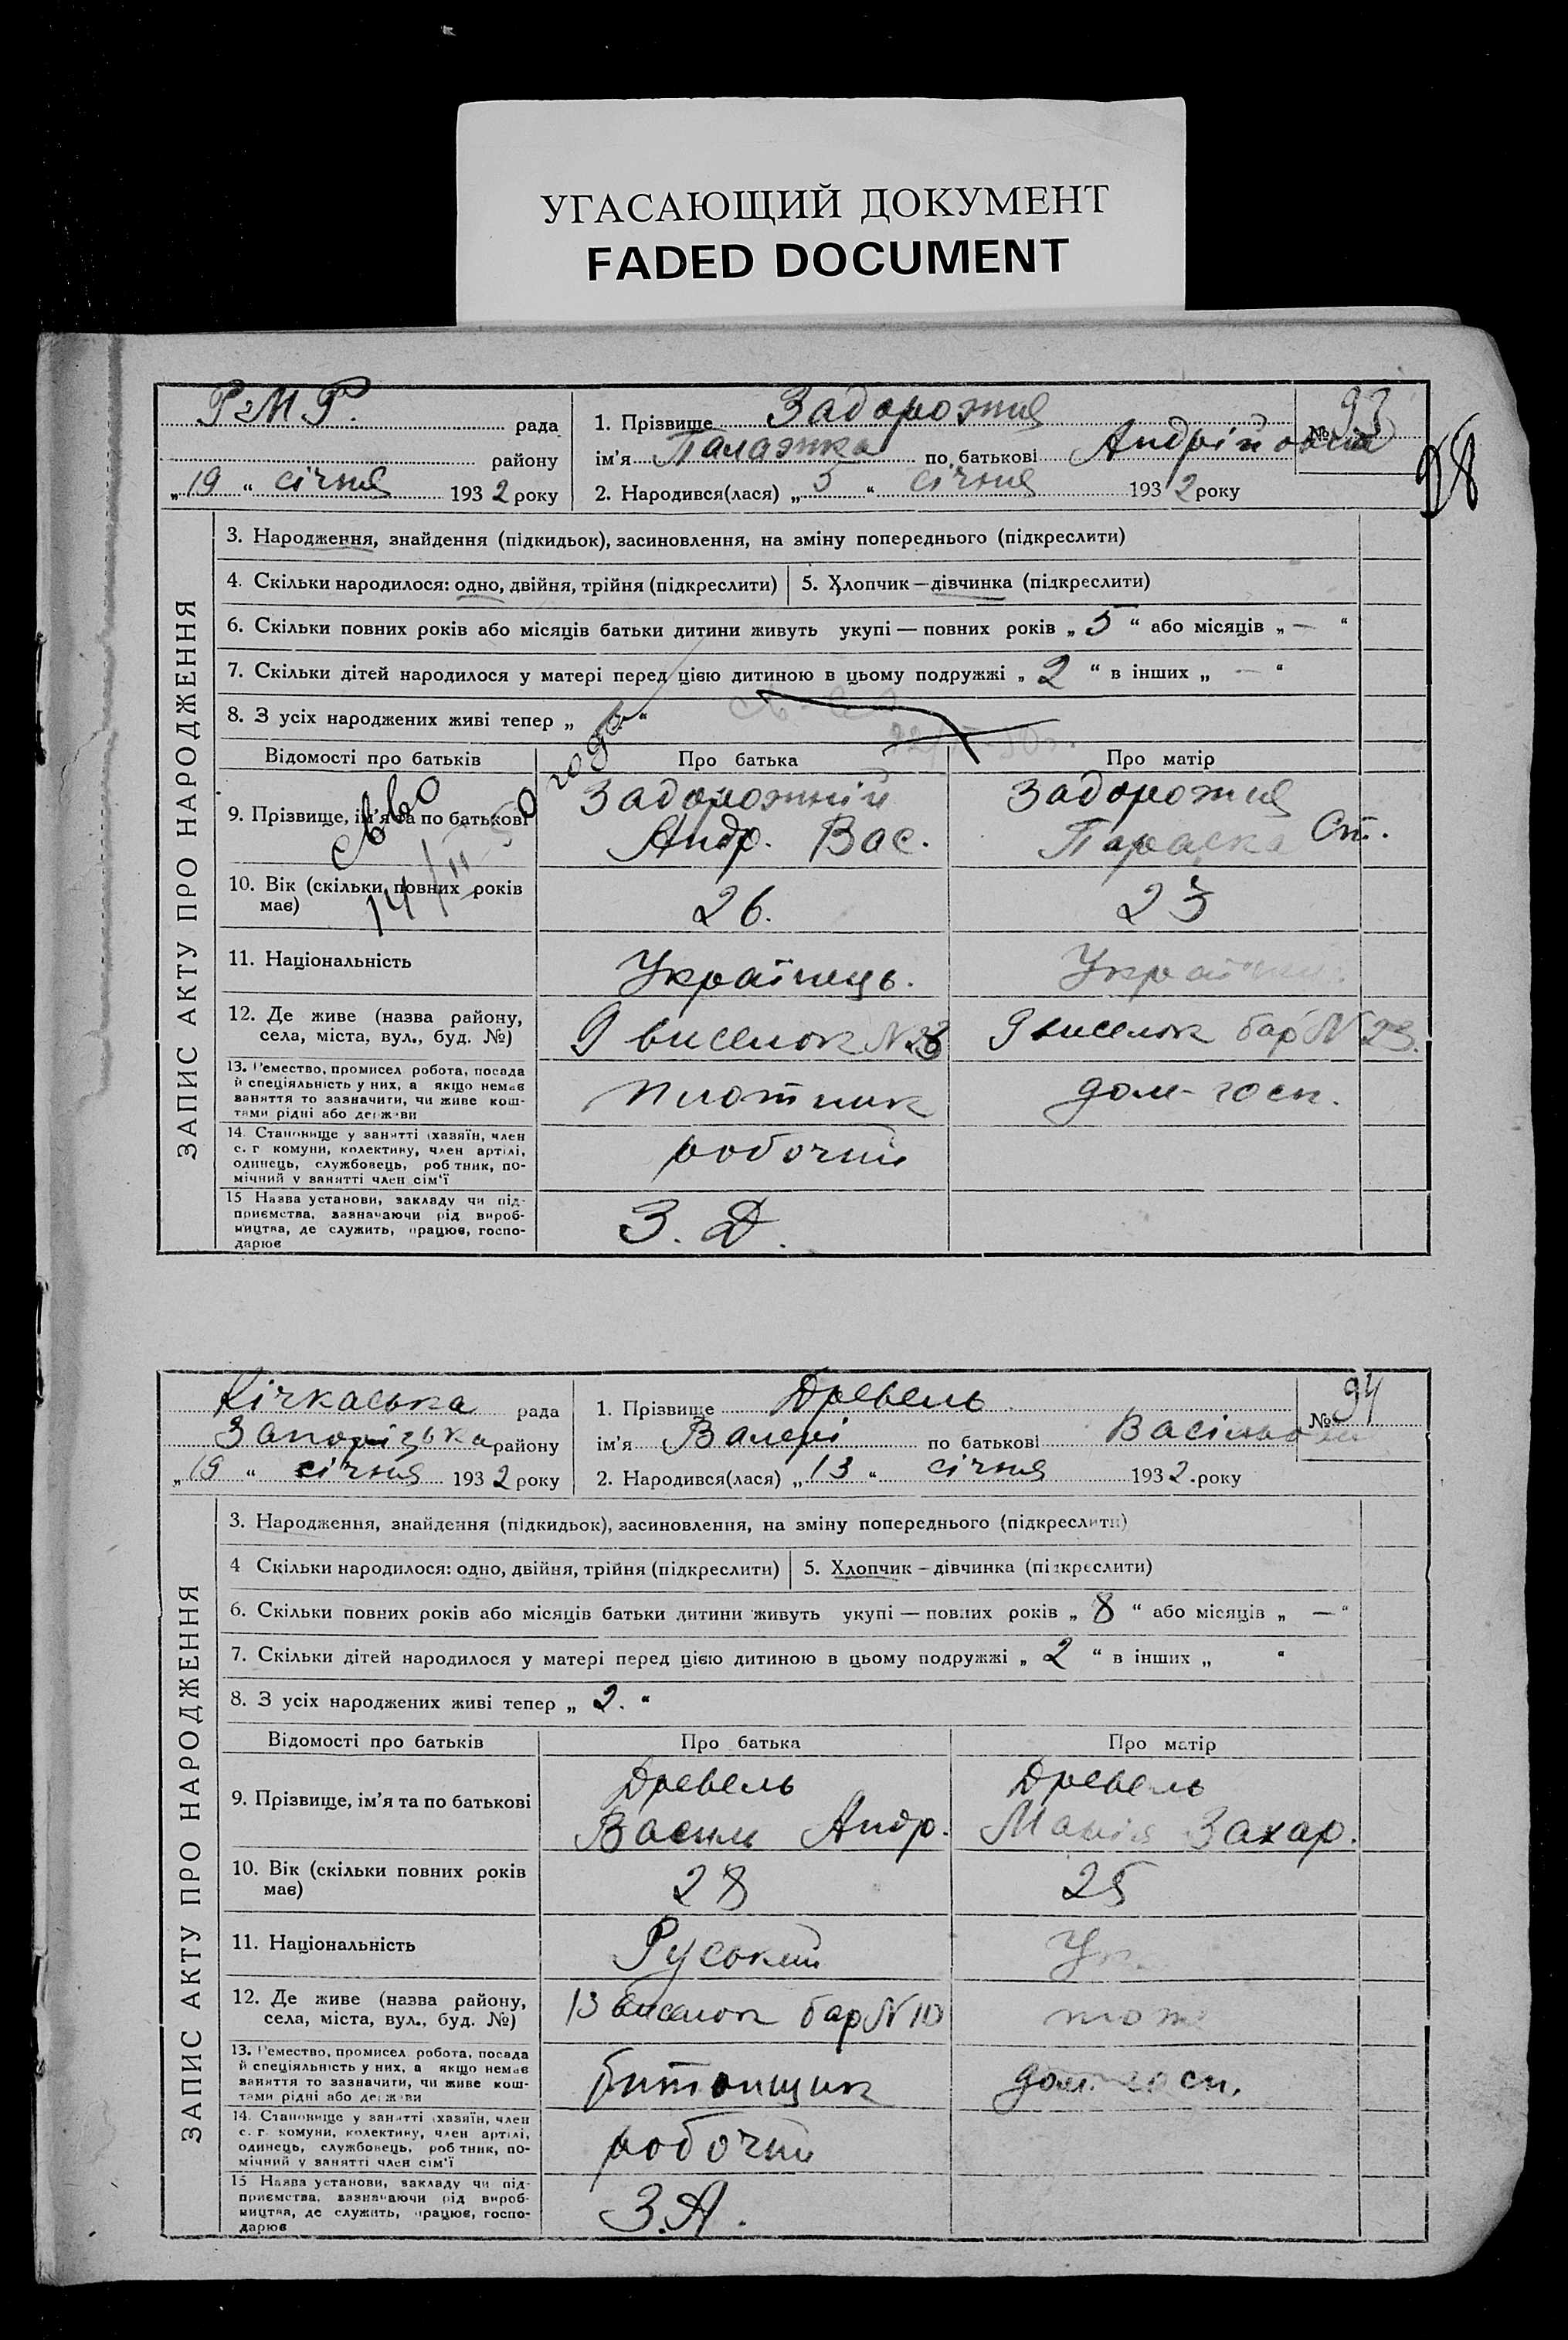 УГАСАЮЩИЙ ДОКУМЕНТ
FADED DOCUMENT
Р.М.Р. рада
району
„19“ січня 1932 року
1. Прізвище Задорожня
ім'я Палажка по батькові Андрійовна
2. Народився(лася) „5“ січня 1932 року
№ 93
98
ЗАПИС АКТУ ПРО НАРОДЖЕННЯ
3. Народження, знайдення (підкидьок), засиновлення, на зміну попереднього (підкреслити)
4. Скільки народилося: одно, двійня, трійня (підкреслити) 5. Хлопчик—дівчинка (підкреслити)
6. Скільки повних років або місяців батьки дитини живуть укупі — повних років „5“ або місяців „—“
7. Скільки дітей народилося у матері перед цією дитиною в цьому подружжі „2“ в інших „—“
8. З усіх народжених живі тепер „ “
Відомості про батьків Про батька Про матір
9. Прізвище, ім'я та по батькові
Задорожній Задорожня
Андр. Вас. Параска Ст.
10. Вік (скільки повних років має) 26. 23
11. Національність Українець.
12. Де живе (назва району, села, міста, вул., буд. №) 9 виселок N 28 9 виселок бар N 23.
13. Ремество, промисел робота, посада
й спеціяльність у них, а якщо немає
заняття то зазначити, чи живе кош-
тами рідні або держави
плотник дом-госп.
14. Становище у занятті (хазяїн, член
с. г комуни, колективу, член артілі,
одинець, службовець, робітник, по-
мічний у занятті член сім'ї
робочий
15 Назва установи, закладу чи під-
приємства, зазначаючи рід вироб-
ництва, де служить, працює, госпо-
дарює
З. Д.
Кічкаська рада
Запоріська району
„19“ січня 1932 року
1. Прізвище Древель
ім'я Валері по батькові
2. Народився(лася) „13“ січня 1932. року
№ 94
ЗАПИС АКТУ ПРО НАРОДЖЕННЯ
3. Народження, знайдення (підкидьок), засиновлення, на зміну попереднього (підкреслити)
4 Скільки народилося: одно, двійня, трійня (підкреслити) 5. Хлопчик—дівчинка (підкреслити)
6. Скільки повних років або місяців батьки дитини живуть укупі — повних років „8“ або місяців „—“
7. Скільки дітей народилося у матері перед цією дитиною в цьому подружжі „2“ в інших „ “
8. З усіх народжених живі тепер „2.“
Відомості про батьків Про батька Про матір
9. Прізвище, ім'я та по батькові
Древель Древель
Васил Андр. Захар.
10. Вік (скільки повних років має) 28 25
11. Національність Руський
12. Де живе (назва району, села, міста, вул., буд. №) 13 виселок бар N 10 тож
13. Ремество, промисел робота, посада
й спеціяльність у них, а якщо немає
заняття то зазначити, чи живе кош-
тами рідні або держави
битонщик дом-госп.
14. Становище у занятті (хазяїн, член
с. г. комуни, колективу, член артілі,
одинець, службовець, робітник, по-
мічний у занятті член сім'ї
робочий
15 Назва установи, закладу чи під-
приємства, зазначаючи рід вироб-
ництва, де служить, працює, госпо-
дарює
З.А.